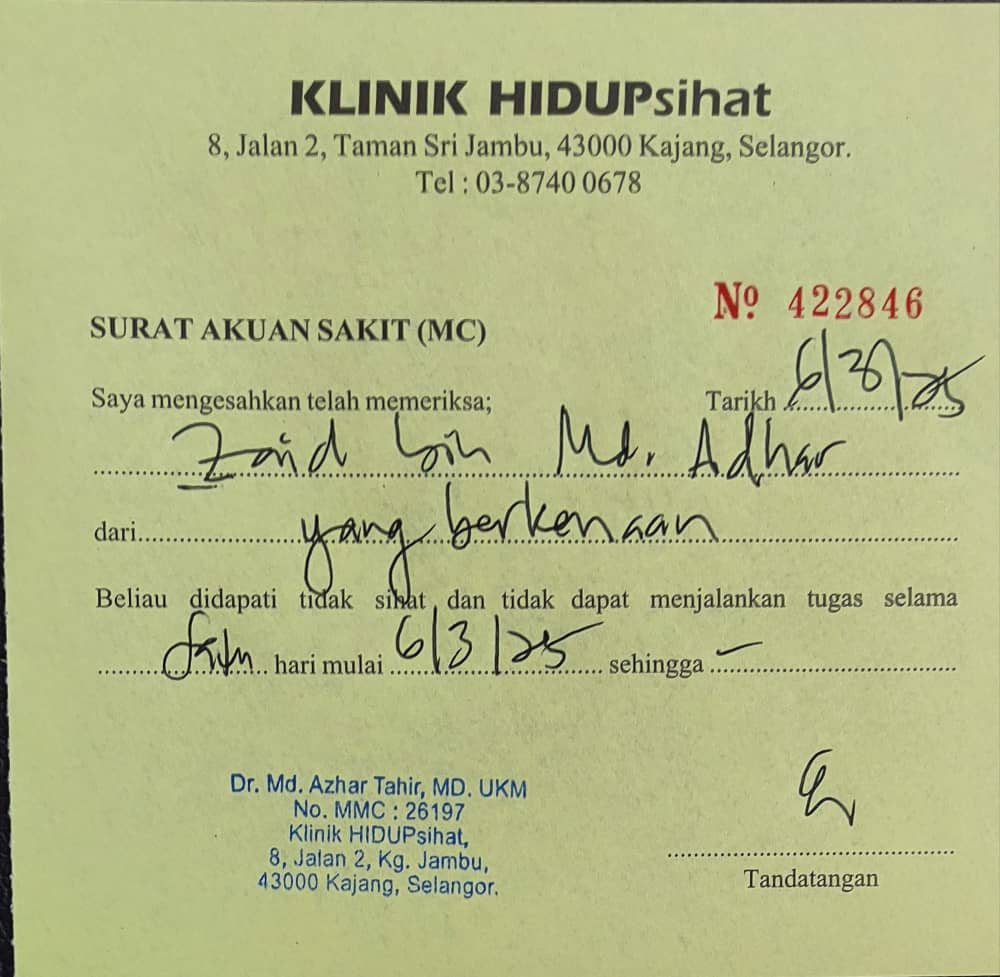 KLINIK HIDUPsihat
8, Jalan 2, Taman Sri Jambu, 43000 Kajang, Selangor.
Tel : 03-8740 0678
Nº 422846
SURAT AKUAN SAKIT (MC)
Saya mengesahkan telah memeriksa; Tarikh 6/3/25
Zaid bin Md. Adhar
dari yang berkenaan
Beliau didapati tidak sihat dan tidak dapat menjalankan tugas selama
satu hari mulai 6/3/25 sehingga -
Dr. Md. Azhar Tahir, MD. UKM
No. MMC : 26197
Klinik HIDUPsihat,
8, Jalan 2, Kg. Jambu,
43000 Kajang, Selangor.
Tandatangan